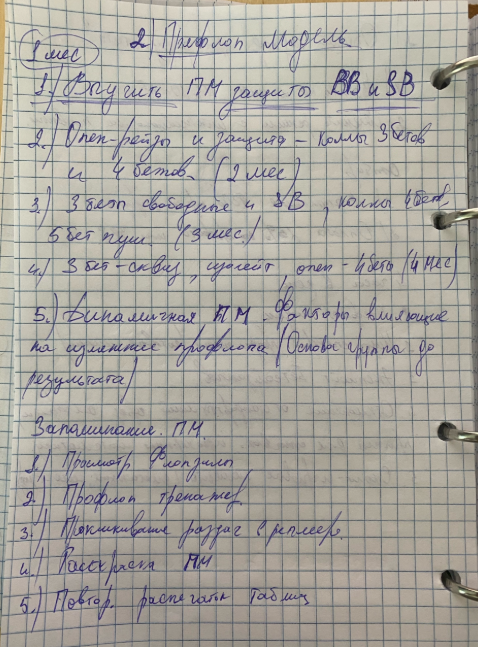 1 мес 2) Префлоп модель
1.) Выучить ПМ защиты BB и SB
2.) Опен-рейзы и защита - коллы 3 бетов
и 4 бетов. (2 мес)
3.) 3 беты свободные и SB, коллы 4 бетов,
5 бет пуш. (3 мес.)
4.) 3 бет-сквиз, изолейт, опен - 4 беты (4 мес)
5.) Динамичная ПМ. Факторы влияющие
на изменение префлопа (Основа группы до
результата)
Запоминание. ПМ.
1.) Просмотр Флопзиллы
2.) Префлоп тренажер
3.) Прокликивание раздач в реплеере.
4.) Раскраска ПМ
5.) Повтор. распечаток таблиц